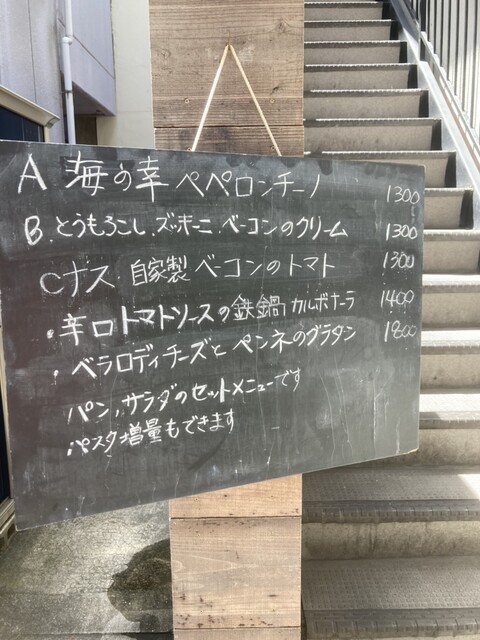 A 海の幸 ペペロンチーノ 1300
B.とうもろこし.ズッキーニ.ベーコンのクリーム 1300
Cナス 自家製ベーコンのトマト 1300
・辛口トマトソースの鉄鍋カルボナーラ 1400
・ベラロディチーズとペンネのグラタン 1800
パン,サラダのセットメニューです
パスタ増量もできます